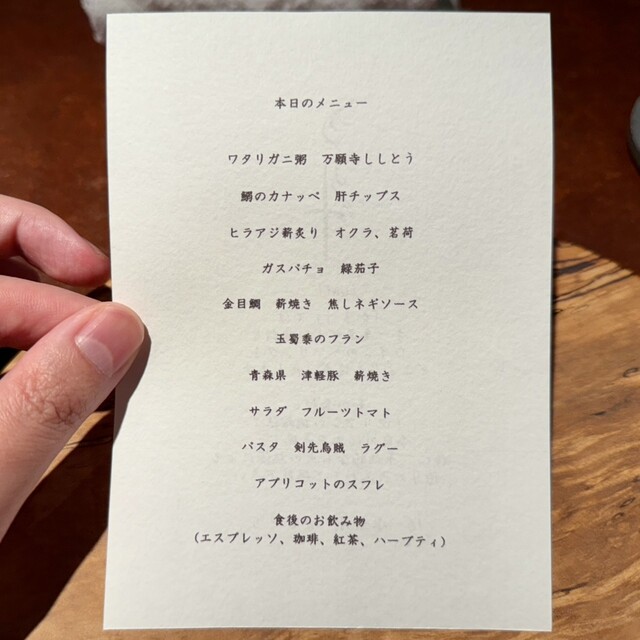 本日のメニュー
ワタリガニ粥　万願寺ししとう
鰯のカナッペ　肝チップス
ヒラアジ薪炙り　オクラ、茗荷
ガスパチョ　緑茄子
金目鯛　薪焼き　焦しネギソース
玉蜀黍のフラン
青森県　津軽豚　薪焼き
サラダ　フルーツトマト
パスタ　剣先烏賊　ラグー
アプリコットのスフレ
食後のお飲み物
（エスプレッソ、珈琲、紅茶、ハーブティ）